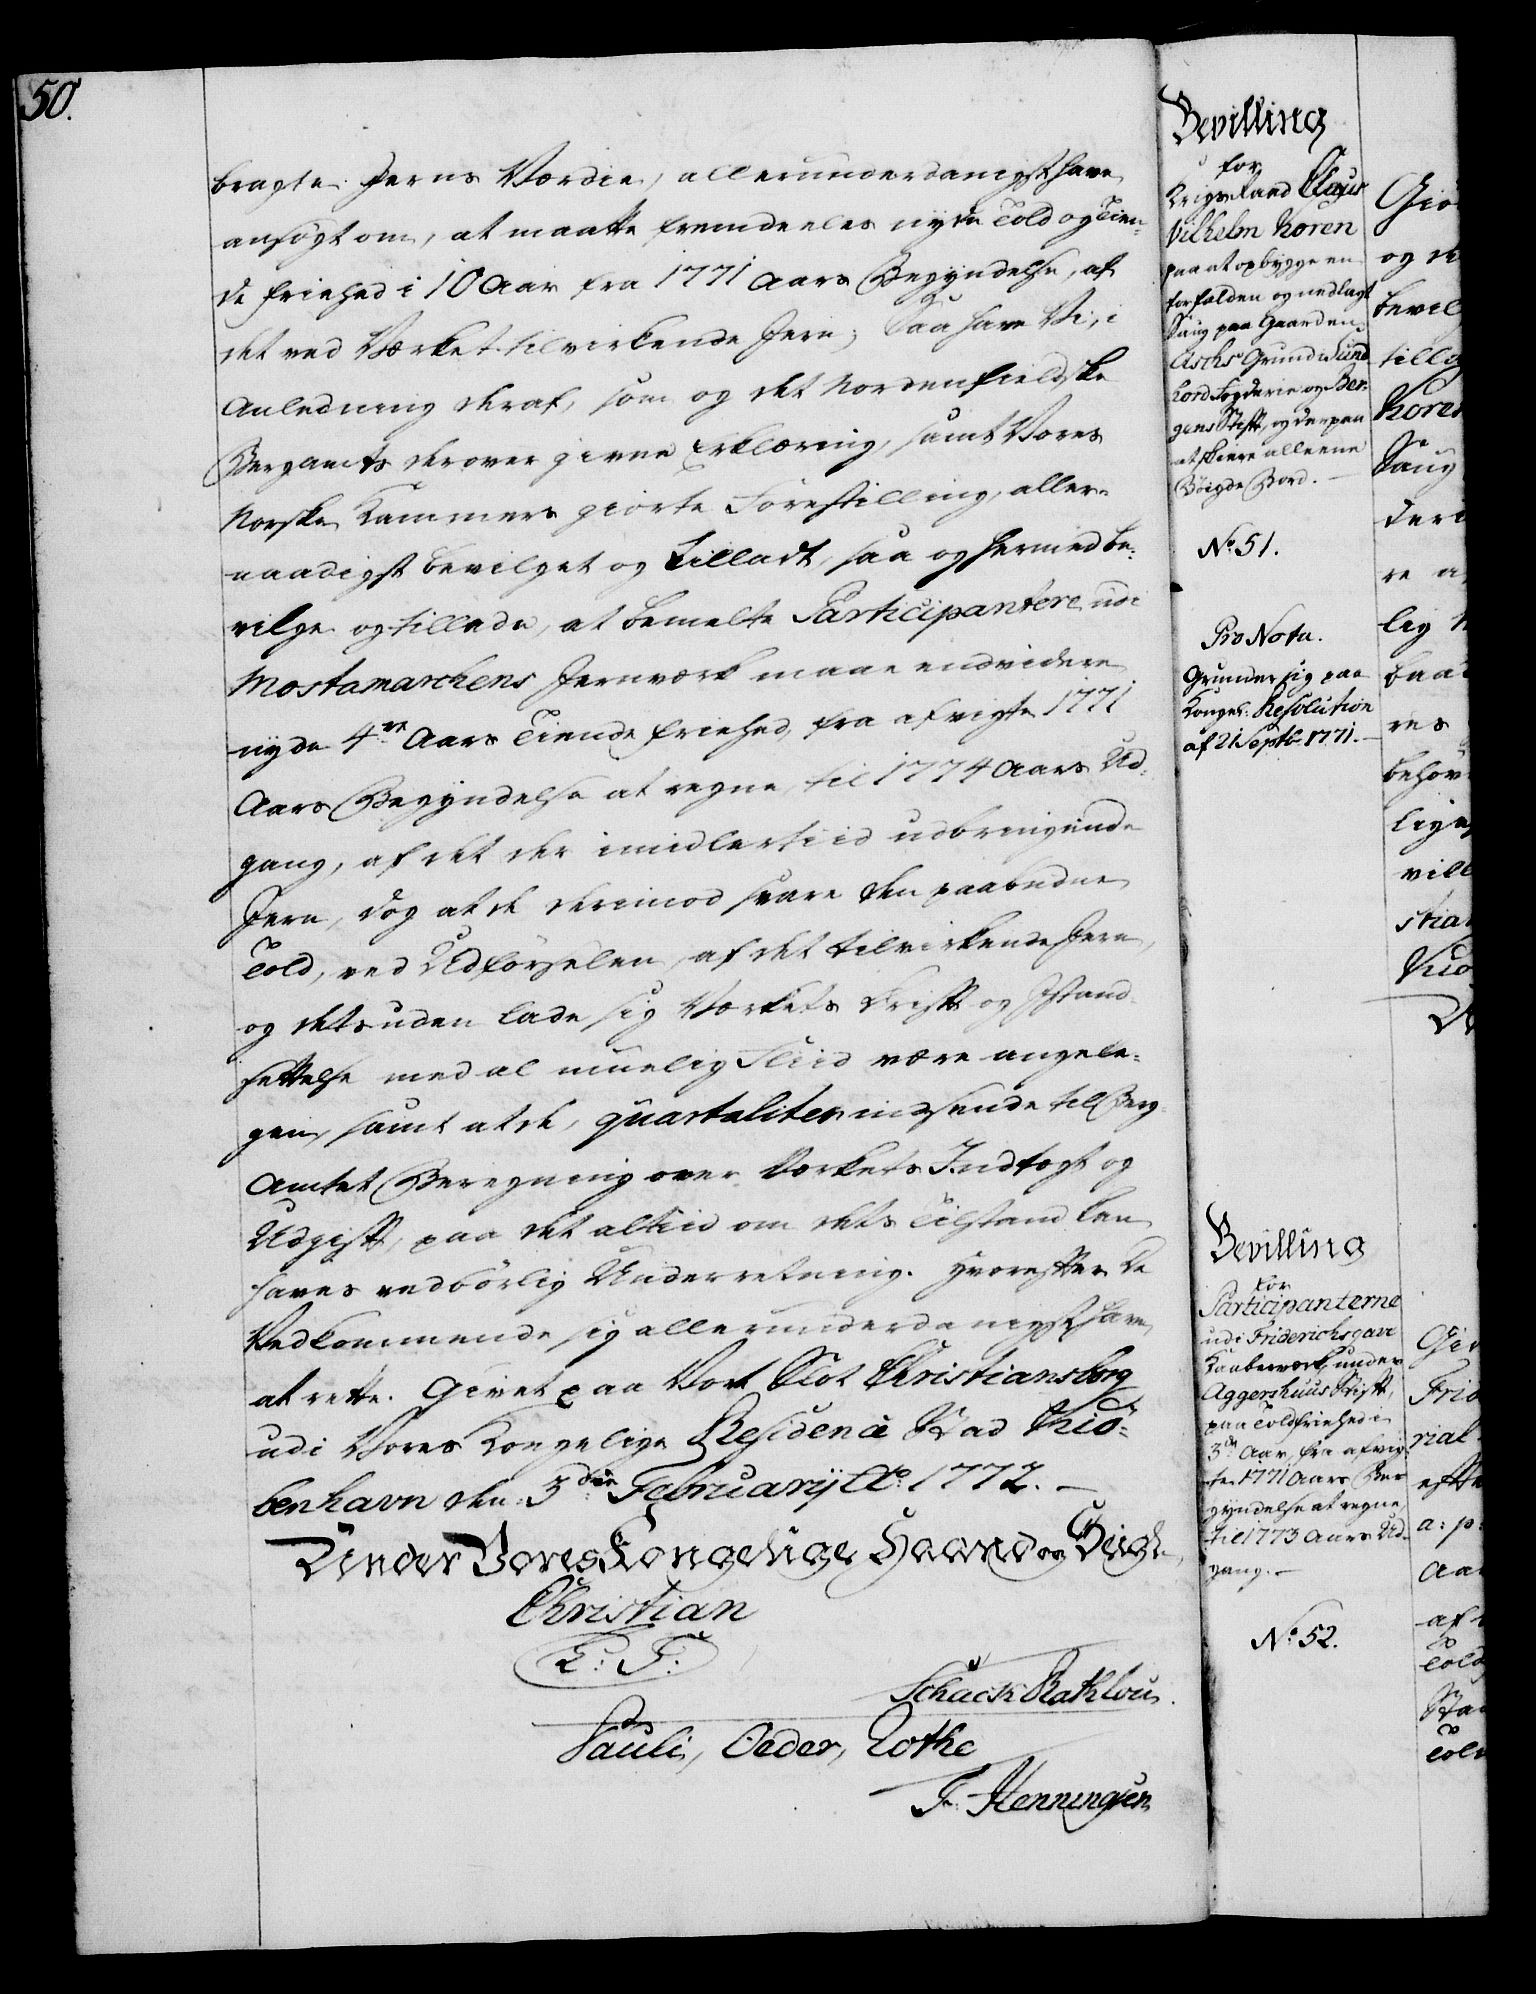 50.
bragte Jerns Værdie, allerunderdanigst have
ansøgt om, at maatte fremdeeles nyde Told og Tien-
de friehed i 10 Aar fra 1771 Aars Begyndelse, af
det ved Værket tilvirkende Jern; Saa have Vi, i
Anledning deraf, som og det Nordenfieldske
Bergamts derover givne Erklæring, samt Vores
Norske Kammers giorte Forestilling, aller-
naadigst bevilget og tilladt, saa og hermed be-
vilge og tillade, at bemelte Participantere udi
Mostamarchens Jernværk maae endvidere
nyde 4re Aars Tiende friehed, fra afvigte 1771
Aars Begyndelse at regne, til 1774 Aars Ud-
gang, af det der imidlertiid udbringende
Jern, dog at de derimod svare den paabudne
Told, ved Udførselen, af det tilvirkende Jern,
og desuden lade sig Værkets Drift og Istand-
settelse med al muelig Fliid være angele-
gen, samt at de, quartaliter indsende til Berg-
Amtet Beregning over Værkets Indtægt og
Udgift, paa det altiid om dets Tilstand kan
haves vedbörlig Underretning. Hvorefter De
Vedkommende sig allerunderdanigst have
at rette. Givet paa Vort Slot Christiansborg
udi Vores Kongelige Residence Stad Kiö-
benhavn den: 3die Februarÿ Ao 1772. —
Under Vores Kongelige Haand og Seigl.
Christian
L: S:
Schack Rathlou.
Pauli, Oeder, Rothe
F. Henningsen
Bevilling
for
Krigs Raad Claus
Vilhelm Koren
paa at opbygge en
forfalden og nedlagt
Saug paa Gaarden
Aschs Grund i Sund
hord Fogderie og Ber-
gens Stift, og derpaa
at skiere alleene
Böigde Bord. —
No. 51.
Pro Nota.
Grunder sig paa
Kongel: Resolution
af 21 Septb. 1771. —
Bevilling
for
Participanterne
udi Friderichsgave
Kaaberværk under
Aggershuus Stift,
paa Toldfriehed i
3de Aar, fra afvig-
te 1771 Aars Be-
gyndelse at regne,
til 1773 Aars Ud-
gang. —
No. 52.
Giö
og de
bevil
tilla
Koren
Saug
deri
re a
lig
baa
res
behöv
lige
vill
stian
Kiö
Giö
Frid
rial
efte
a: p:
Aar
af
Told
Sta
Told